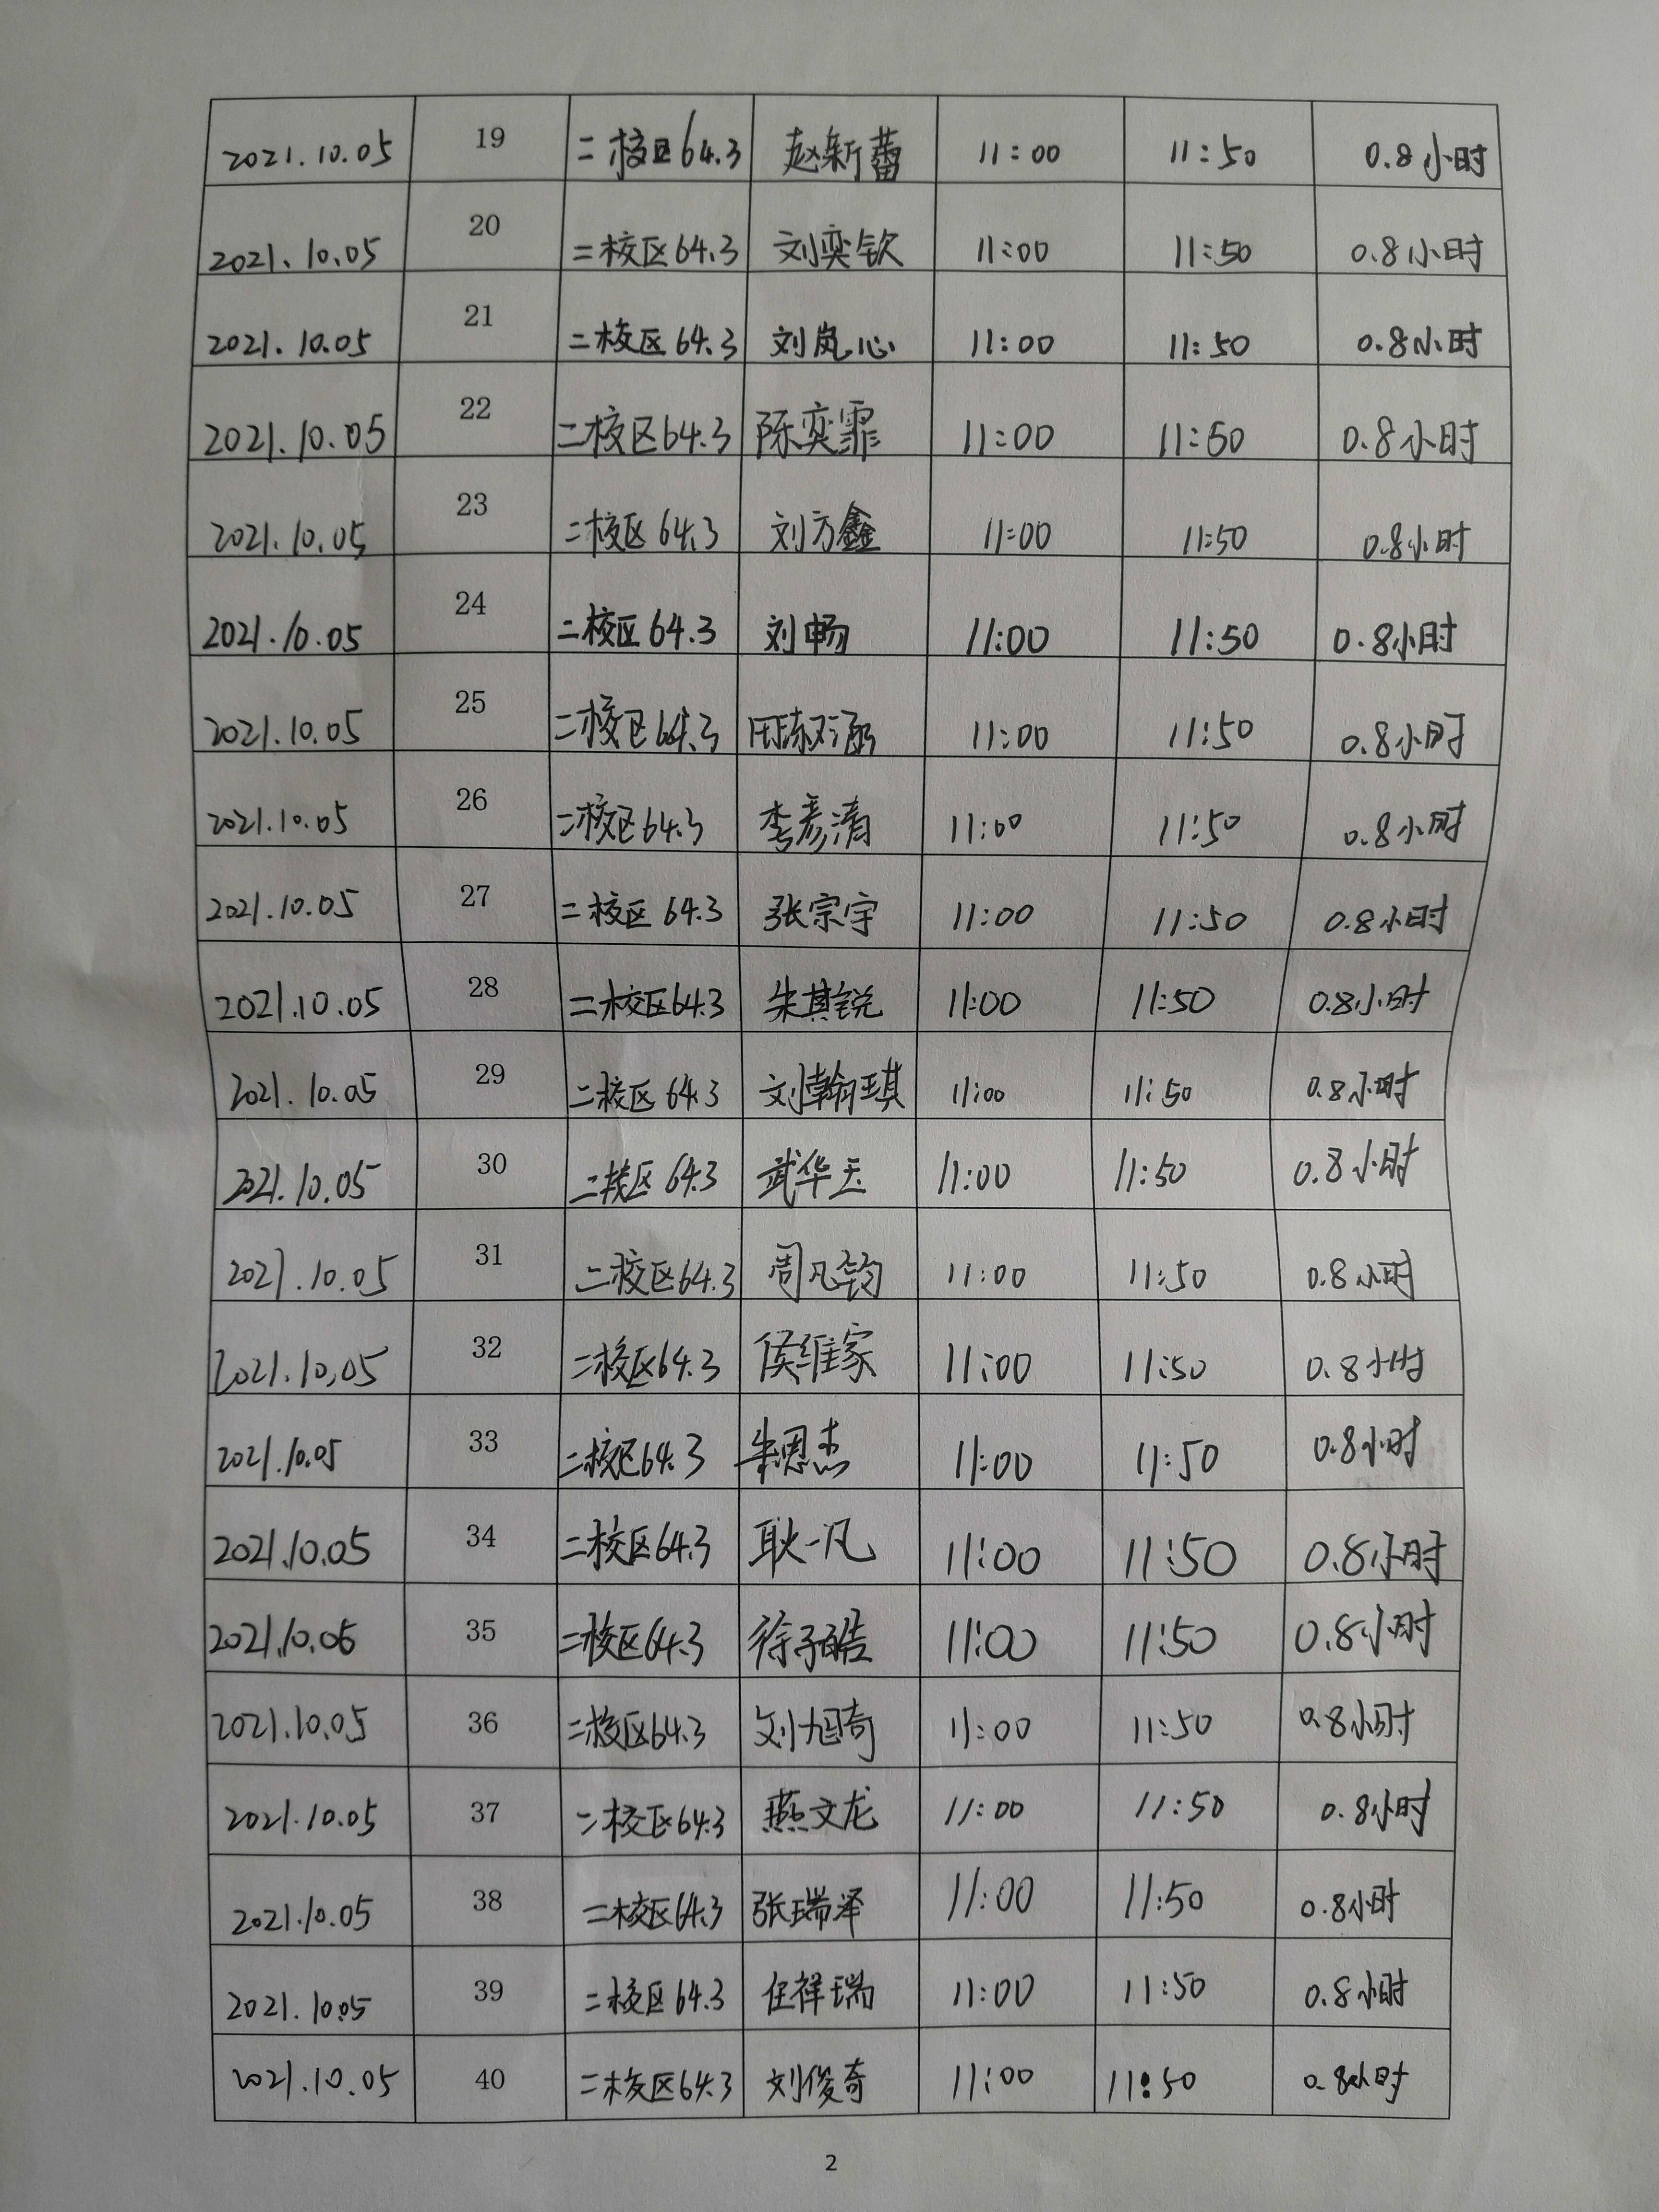 2021.10.05 19 二校区64.3 赵新蕾 11:00 11:50 0.8小时
2021.10.05 20 二校区64.3 刘奕钦 11:00 11:50 0.8小时
2021.10.05 21 二校区64.3 刘岚心 11:00 11:50 0.8小时
2021.10.05 22 二校区64.3 陈奕霏 11:00 11:50 0.8小时
2021.10.05 23 二校区64.3 刘方鑫 11:00 11:50 0.8小时
2021.10.05 24 二校区64.3 刘畅 11:00 11:50 0.8小时
2021.10.05 25 二校区64.3 11:00 11:50 0.8小时
2021.10.05 26 二校区64.3 李彦清 11:00 11:50 0.8小时
2021.10.05 27 二校区64.3 张宗宇 11:00 11:50 0.8小时
2021.10.05 28 二校区64.3 朱其锐 11:00 11:50 0.8小时
2021.10.05 29 二校区64.3 刘翰琪 11:00 11:50 0.8小时
2021.10.05 30 二校区64.3 武华玉 11:00 11:50 0.8小时
2021.10.05 31 二校区64.3 周凡钧 11:00 11:50 0.8小时
2021.10.05 32 二校区64.3 侯维家 11:00 11:50 0.8小时
2021.10.05 33 二校区64.3 朱恩杰 11:00 11:50 0.8小时
2021.10.05 34 二校区64.3 耿一凡 11:00 11:50 0.8小时
2021.10.05 35 二校区64.3 徐子皓 11:00 11:50 0.8小时
2021.10.05 36 二校区64.3 刘旭奇 11:00 11:50 0.8小时
2021.10.05 37 二校区64.3 燕文龙 11:00 11:50 0.8小时
2021.10.05 38 二校区64.3 张瑞泽 11:00 11:50 0.8小时
2021.10.05 39 二校区64.3 任祥瑞 11:00 11:50 0.8小时
2021.10.05 40 二校区64.3 刘俊奇 11:00 11:50 0.8小时
2